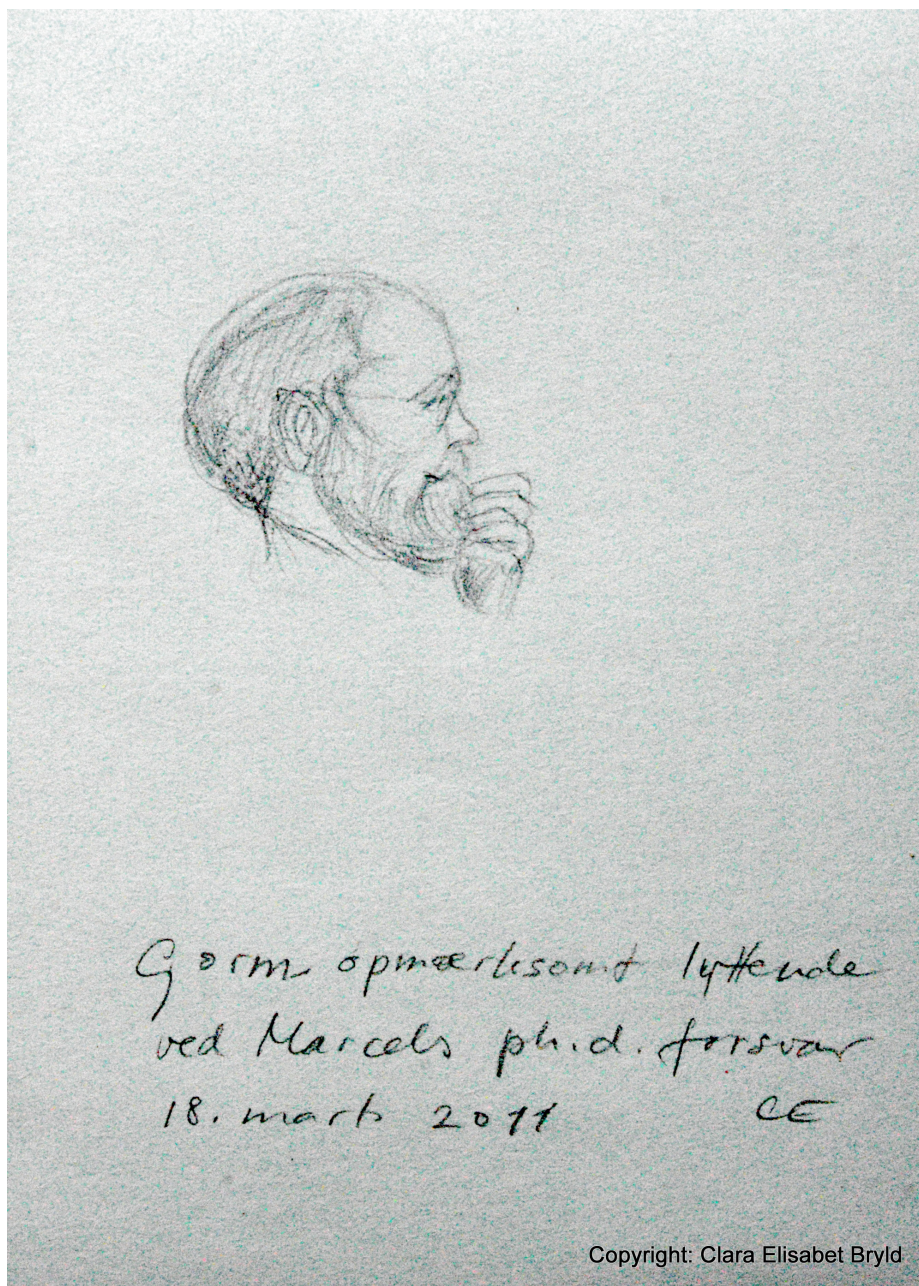 Gorm opmærksomt lyttende
ved Marcels ph.d. forsvar
18. marts 2011 CE
Copyright: Clara Elisabet Bryld